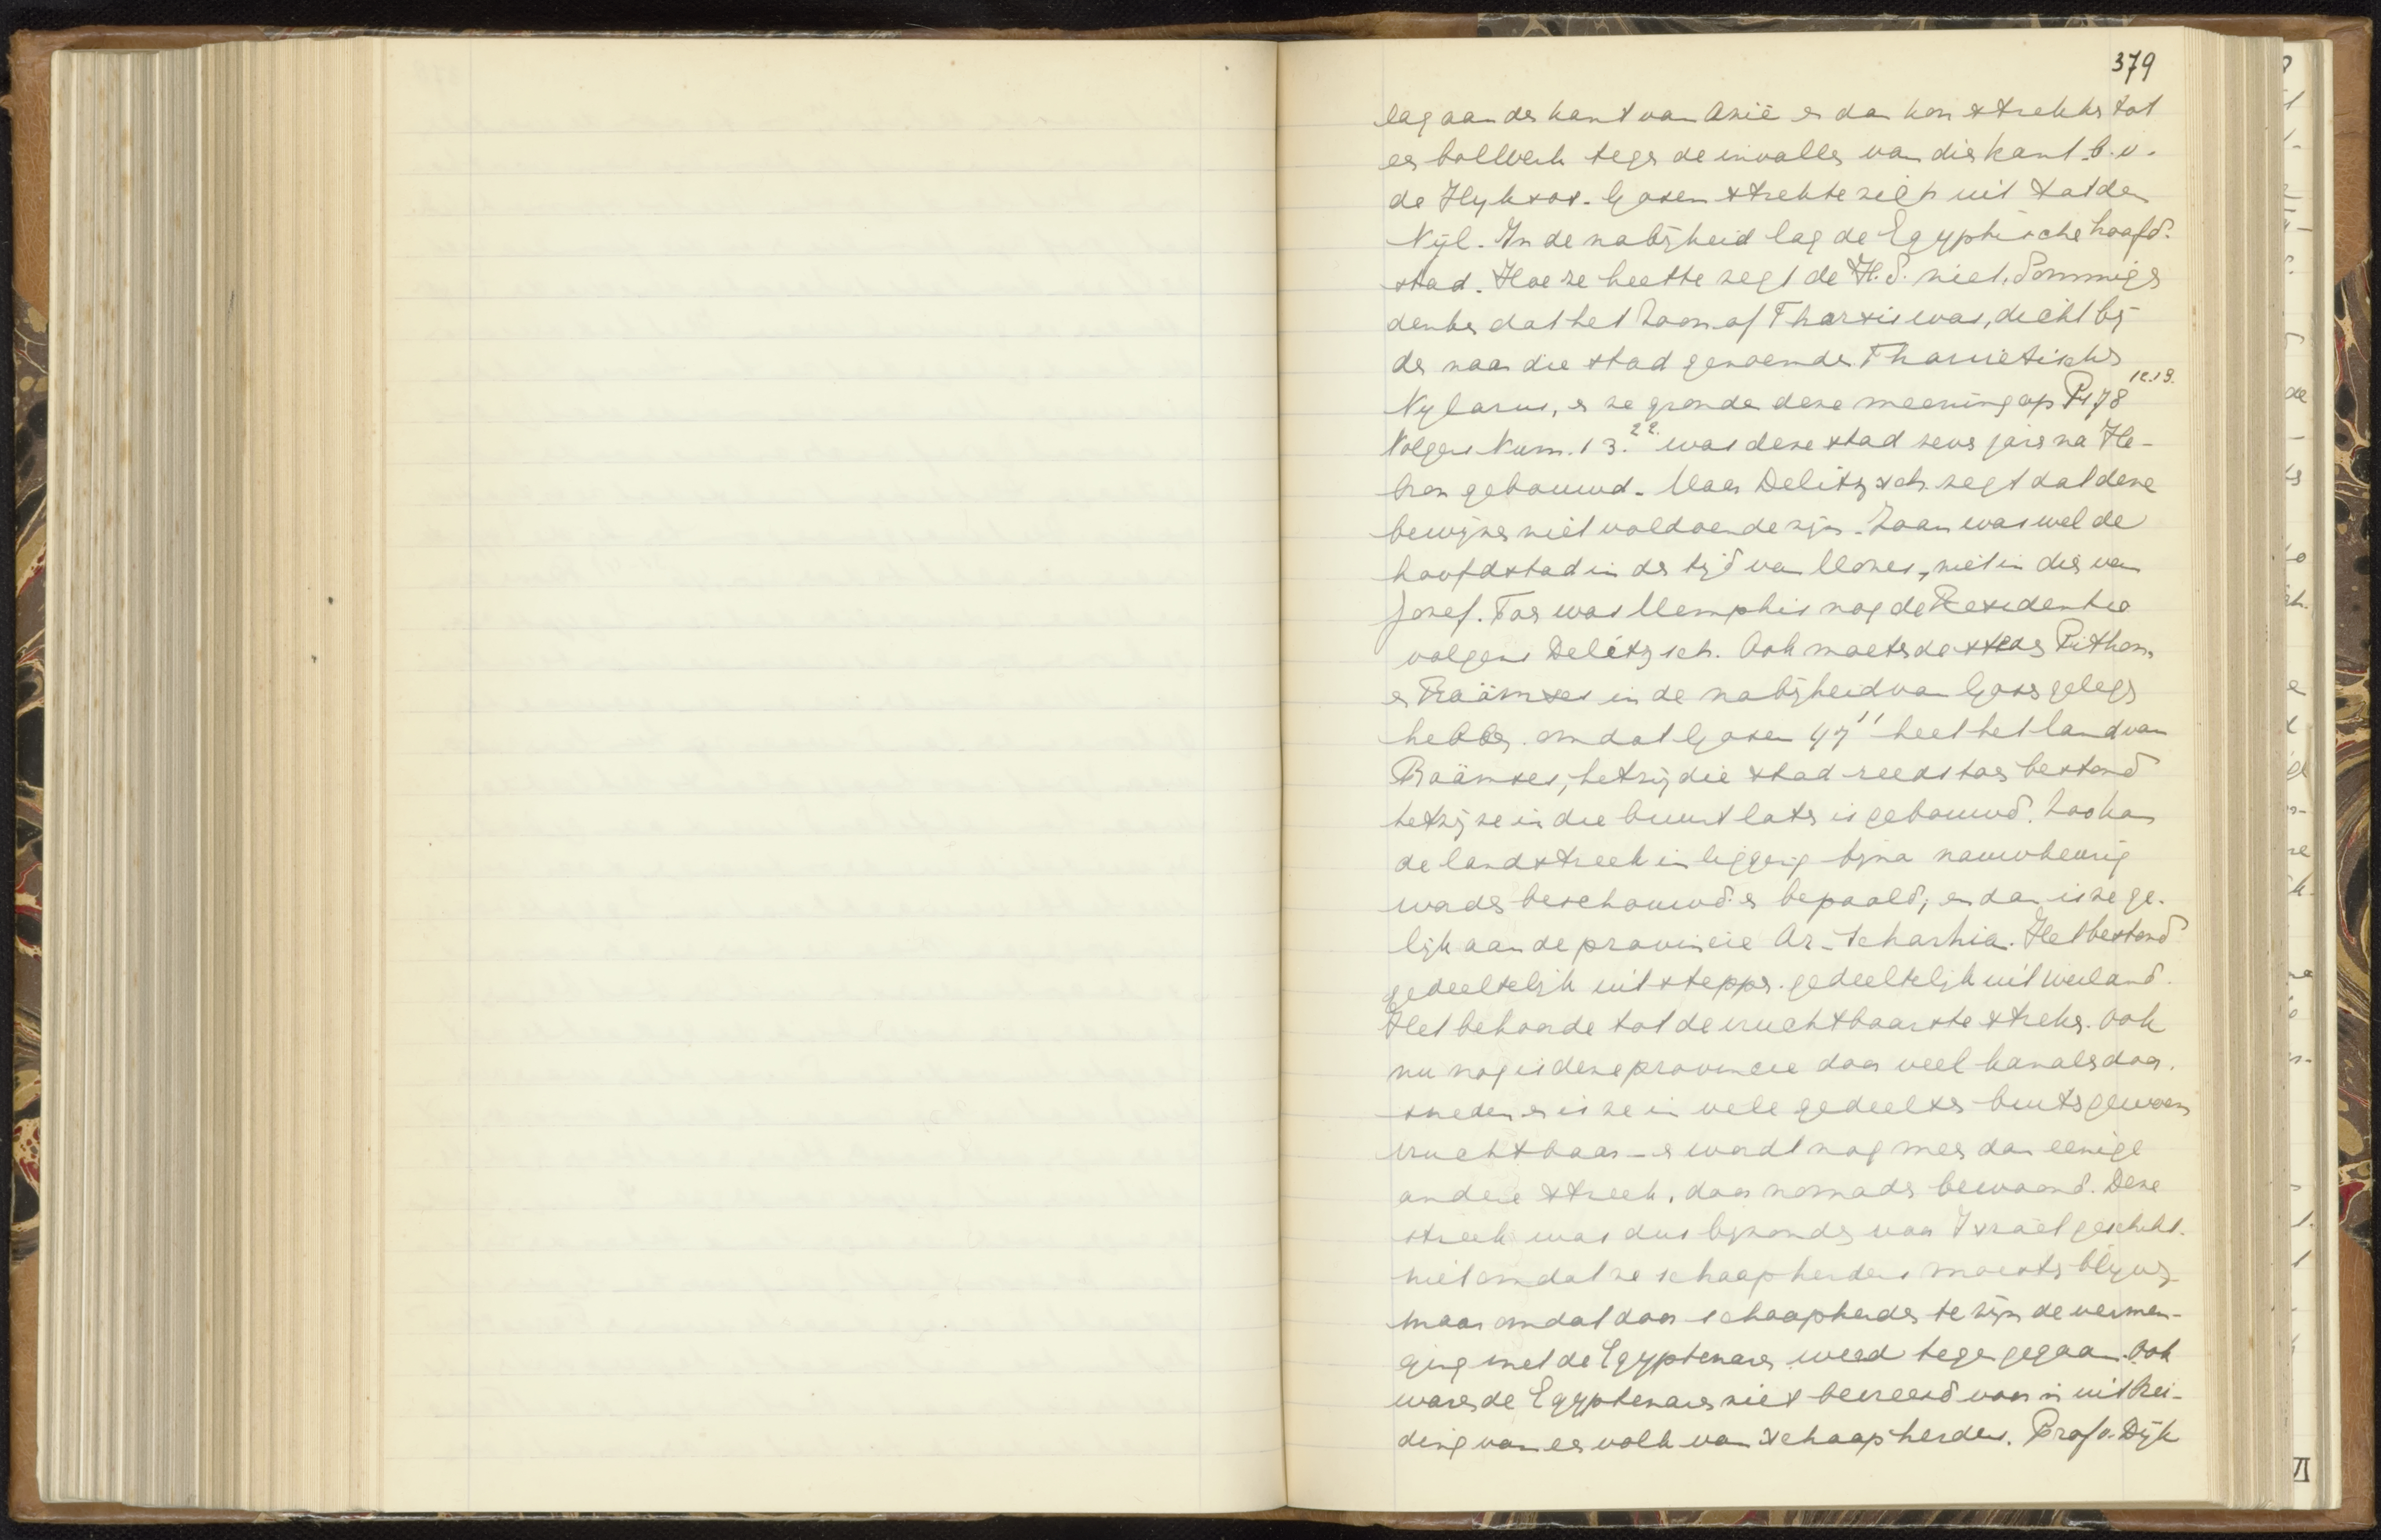 379
lag aan de kant van Azië en dan kon strekken tot
een bolwerk tegen de invallen van die kant b.v.
de Hyksos. Gosen strekte zich uit tot den
Nijl. In de nabijheid lag de Egyptische hoofd-
stad. Hoe ze heette zegt de H.S. niet. Sommigen
denken dat het Zoan of Tharsis was, dicht bij
de naar die stad genoemde Thanietischen
Nylarm, en ze gronden deze meening op Ps 78 12.13.
Volgens Num. 13.22. was deze stad zeven jaren na He-
bron gebouwd. Maar Delitzsch zegt dat deze
bewijzen niet voldoende zijn. Zoan was wel de
hoofdstad in de tijd van Mozes, niet in die van
Jozef. Toen was Memphis nog de Residentie
volgens Delitzsch. Ook moeten de steden Pithom
en Raämses in de nabijheid van Gosen gelegen
hebben. omdat Gosen 47 11 heet het land van
Raämses, hetzij die stad reeds toen bestond
hetzij ze in die buurt later is gebouwd. Zoo kan
de landstreek in ligging bijna nauwkeurig
worden beschouwd en bepaald, en dan is ze ge-
lijk aan de provincie Ar-Scharkia. Het bestond
gedeeltelijk uit steppen. gedeeltelijk uit weiland.
Het behoorde tot de vruchtbaarste streken. Ook
nu nog is deze provincie door veel kanalen door-
sneden en is ze in vele gedeelten buitengewoon
vruchtbaar - en wordt nog meer dan eenige
andere streek, door nomaden bewoond. Deze
streek was dus bijzonder voor Israël geschikt.
niet omdat ze schaapherders moesten blijven
maar omdat door schaapherder te zijn de vermen-
ging met de Egyptenaren werd tegengegaan. Ook
waren de Egyptenaren niet bevreesd voor uitbrei-
ding van een volk van schaapherders. Prof v. Dijk
VI